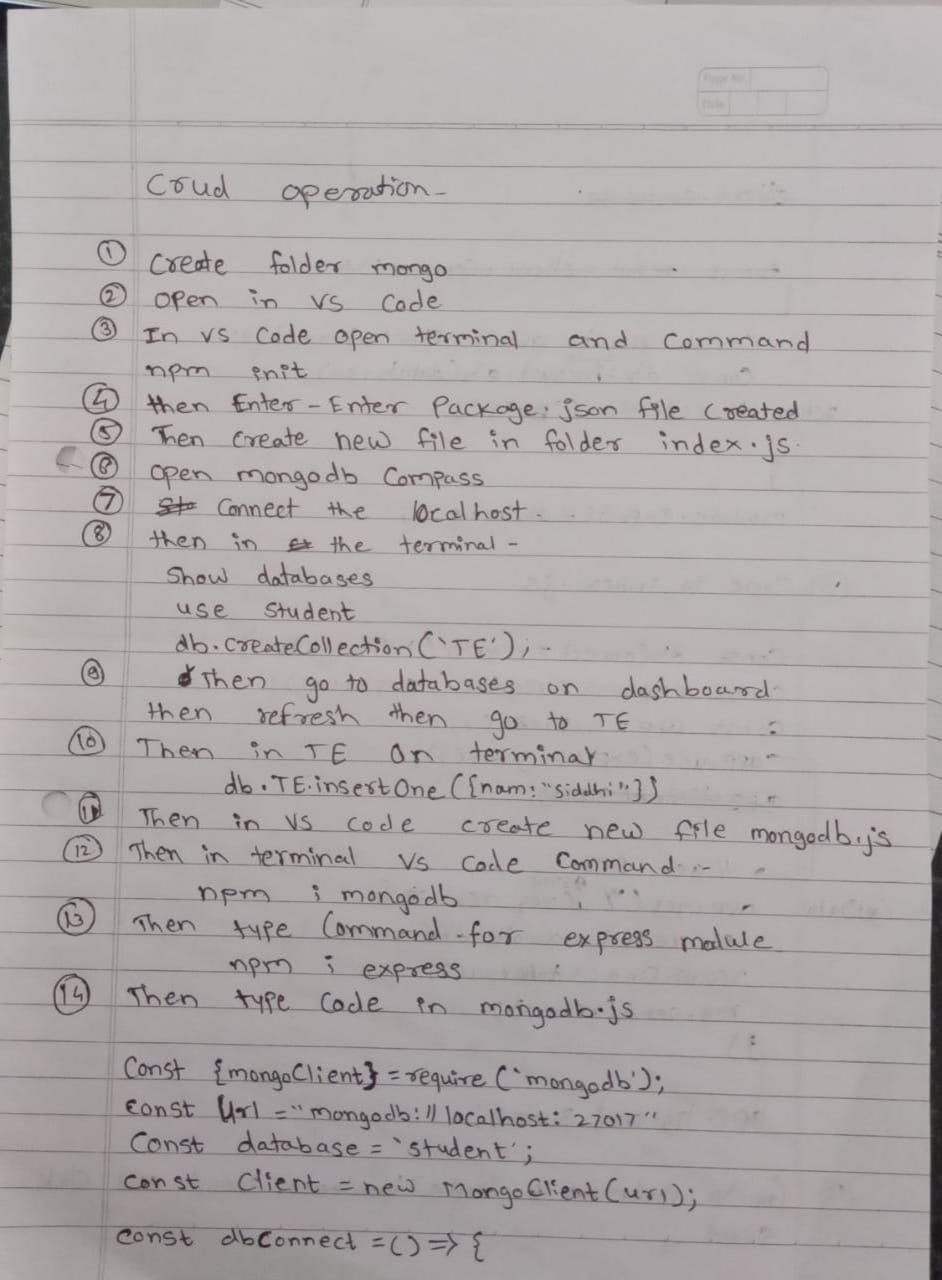 Page No
Date
Crud operation-
① Create folder mongo
② open in vs code
③ In vs code open terminal and command
npm init
④ then Enter-Enter Package.json file created
⑤ Then create new file in folder index.js.
⑥ open mongodb Compass
⑦ Connect the localhost.
⑧ then in the terminal -
Show databases
use student
db.createCollection('TE');
⑨ Then go to databases on dashboard
then refresh then go to TE
⑩ Then in TE on terminal
db.TE.insertOne({nam:"siddhi"})
⑪ Then in vs code create new file mongodb.js
⑫ Then in terminal vs code command:-
npm i mongodb
⑬ Then type Command for express malule
npm i express
⑭ Then type code in mongodb.js
Const {mongoClient} = require('mongodb');
const Url = "mongodb://localhost:27017"
Const database = 'student';
const Client = new MongoClient(url);
const dbConnect = () => {